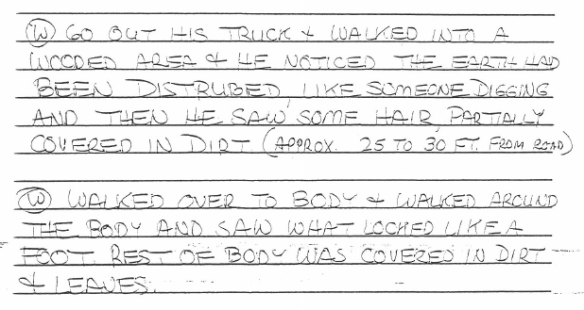 (W) GO OUT HIS TRUCK & WALKED INTO A
WOODED AREA & HE NOTICED THE EARTH HAD
BEEN DISTRUBED, LIKE SOMEONE DIGGING
AND THEN HE SAW SOME HAIR, PARTIALLY
COVERED IN DIRT. (APPROX. 25 TO 30 FT. FROM ROAD)
(W) WALKED OVER TO BODY & WALKED AROUND
THE BODY AND SAW WHAT LOOKED LIKE A
FOOT. REST OF BODY WAS COVERED IN DIRT
& LEAVES.